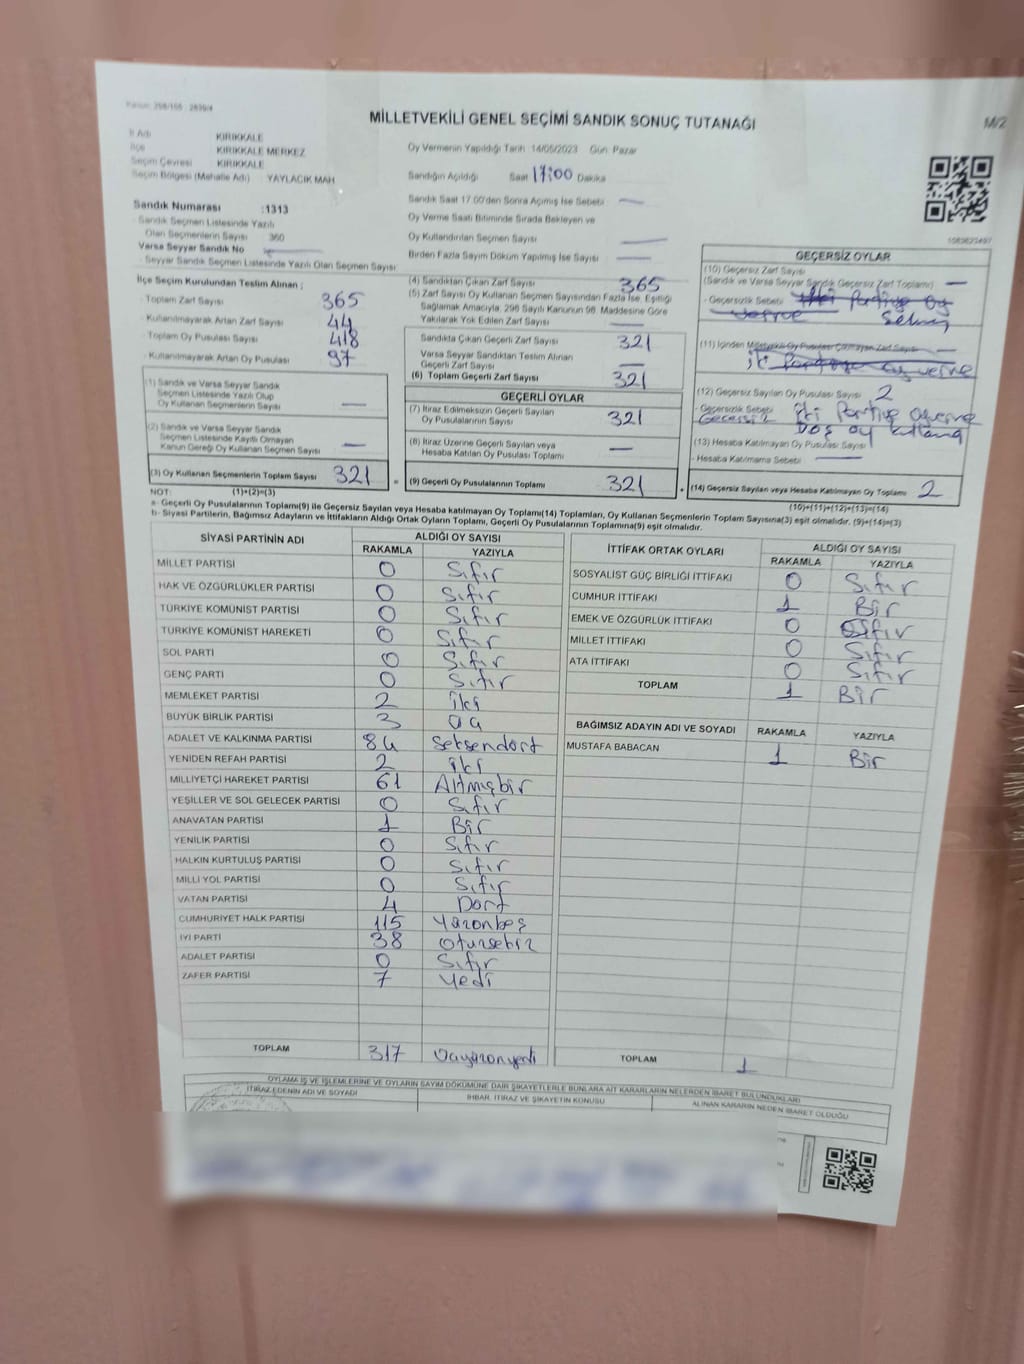 MİLLETVEKİLİ GENEL SEÇİMİ SANDIK SONUÇ TUTANAĞI
M/2
İl Adı KIRIKKALE
İlçe KIRIKKALE MERKEZ
Seçim Çevresi KIRIKKALE
Seçim Bölgesi (Mahalle Adı) YAYLACIK MAH
Oy Vermenin Yapıldığı Tarih 14/05/2023 Gün Pazar
Sandığın Açıldığı Saat 17:00 Dakika
Sandık Numarası :1313
- Sandık Seçmen Listesinde Yazılı
Olan Seçmenlerin Sayısı 360
Varsa Seyyar Sandık No
- Seyyar Sandık Seçmen Listesinde Yazılı Olan Seçmen Sayısı
Sandık Saat 17.00'den Sonra Açımış İse Sebebi
Oy Verme Saati Bitiminde Sırada Bekleyen ve
Oy Kullandırılan Seçmen Sayısı
Birden Fazla Sayım Döküm Yapılmış İse Sayısı
İlçe Seçim Kurulundan Teslim Alınan ;
- Toplam Zarf Sayısı 365
- Kullanılmayarak Artan Zarf Sayısı 44
- Toplam Oy Pusulası Sayısı 418
- Kullanılmayarak Artan Oy Pusulası 97
(1) Sandık ve Varsa Seyyar Sandık
Seçmen Listesinde Yazılı Olup
Oy Kullanan Seçmenlerin Sayısı —
(2) Sandık ve Varsa Seyyar Sandık
Seçmen Listesinde Kayıtlı Olmayan
Kanun Gereği Oy Kullanan Seçmen Sayısı —
(3) Oy Kullanan Seçmenlerin Toplam Sayısı 321
(4) Sandıktan Çıkan Zarf Sayısı 365
(5) Zarf Sayısı Oy Kullanan Seçmen Sayısından Fazla İse, Eşitliği
Sağlamak Amacıyla, 298 Sayılı Kanunun 98. Maddesine Göre
Yakılarak Yok Edilen Zarf Sayısı
Sandıkta Çıkan Geçerli Zarf Sayısı 321
Varsa Seyyar Sandıktan Teslim Alınan
Geçerli Zarf Sayısı
(6) Toplam Geçerli Zarf Sayısı 321
GEÇERLİ OYLAR
(7) İtiraz Edilmeksizin Geçerli Sayılan
Oy Pusulalarının Sayısı 321
(8) İtiraz Üzerine Geçerli Sayılan veya
Hesaba Katılan Oy Pusulası Toplamı —
(9) Geçerli Oy Pusulalarının Toplamı 321
GEÇERSİZ OYLAR
(10) Geçersiz Zarf Sayısı
(Sandık ve Varsa Seyyar Sandık Geçersiz Zarf Toplamı) —
- Geçersizlik Sebebi
(11) İçinden Milletvekili Oy Pusulası Çıkmayan Zarf Sayısı
(12) Geçersiz Sayılan Oy Pusulası Sayısı 2
- Geçersizlik Sebebi iki Partiye oy verme
Boş oy
(13) Hesaba Katılmayan Oy Pusulası Sayısı
- Hesaba Katılmama Sebebi
(14) Geçersiz Sayılan veya Hesaba Katılmayan Oy Toplamı 2
NOT: (1)+(2)=(3)
(10)+(11)+(12)+(13)=(14)
a- Geçerli Oy Pusulalarının Toplamı(9) ile Geçersiz Sayılan veya Hesaba katılmayan Oy Toplamı(14) Toplamları, Oy Kullanan Seçmenlerin Toplam Sayısına(3) eşit olmalıdır. (9)+(14)=(3)
b- Siyasi Partilerin, Bağımsız Adayların ve İttifakların Aldığı Ortak Oyların Toplamı, Geçerli Oy Pusulalarının Toplamına(9) eşit olmalıdır.
SİYASİ PARTİNİN ADI ALDIĞI OY SAYISI
RAKAMLA YAZIYLA
MİLLET PARTİSİ 0 Sıfır
HAK VE ÖZGÜRLÜKLER PARTİSİ 0 Sıfır
TÜRKİYE KOMÜNİST PARTİSİ 0 Sıfır
TÜRKİYE KOMÜNİST HAREKETİ 0 Sıfır
SOL PARTİ 0 Sıfır
GENÇ PARTİ 0 Sıfır
MEMLEKET PARTİSİ 2 iki
BÜYÜK BİRLİK PARTİSİ 3 Üç
ADALET VE KALKINMA PARTİSİ 84 Seksendört
YENİDEN REFAH PARTİSİ 2 iki
MİLLİYETÇİ HAREKET PARTİSİ 61 Altmışbir
YEŞİLLER VE SOL GELECEK PARTİSİ 0 Sıfır
ANAVATAN PARTİSİ 1 Bir
YENİLİK PARTİSİ 0 Sıfır
HALKIN KURTULUŞ PARTİSİ 0 Sıfır
MİLLİ YOL PARTİSİ 0 Sıfır
VATAN PARTİSİ 4 Dört
CUMHURİYET HALK PARTİSİ 115 Yüzonbeş
İYİ PARTİ 38 Otuzsekiz
ADALET PARTİSİ 0 Sıfır
ZAFER PARTİSİ 7 Yedi
TOPLAM 317 Üçyüzonyedi
İTTİFAK ORTAK OYLARI ALDIĞI OY SAYISI
RAKAMLA YAZIYLA
SOSYALİST GÜÇ BİRLİĞİ İTTİFAKI 0 Sıfır
CUMHUR İTTİFAKI 1 Bir
EMEK VE ÖZGÜRLÜK İTTİFAKI 0 Sıfır
MİLLET İTTİFAKI 0 Sıfır
ATA İTTİFAKI 0 Sıfır
TOPLAM 1 Bir
BAĞIMSIZ ADAYIN ADI VE SOYADI RAKAMLA YAZIYLA
MUSTAFA BABACAN 1 Bir
TOPLAM 1
OYLAMA İŞ VE İŞLEMLERİNE VE OYLARIN SAYIM DÖKÜMÜNE DAİR ŞİKAYETLERLE BUNLARA AİT KARARLARIN NELERDEN İBARET BULUNDUKLARI
İTİRAZ EDENİN ADI VE SOYADI İHBAR, İTİRAZ VE ŞİKAYETİN KONUSU ALINAN KARARIN NEDEN İBARET OLDUĞU